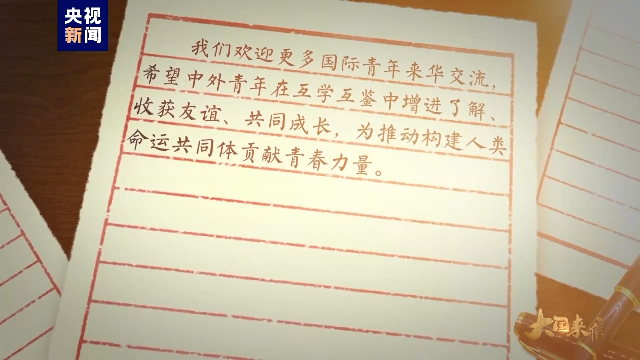 央视
新闻
我们欢迎更多国际青年来华交流，
希望中外青年在互学互鉴中增进了解、
收获友谊、共同成长，为推动构建人类
命运共同体贡献青春力量。
大国来信